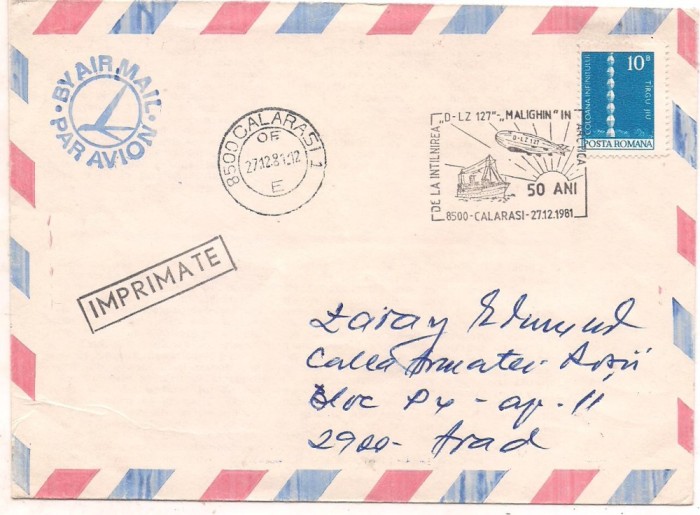 BY AIR MAIL
PAR AVION
8500 CALARASI 1
OF
27.12.81.12
E
DE LA INTILNIREA „D-LZ 127”-„MALIGHIN” IN ARCTICA
D-LZ 127
50 ANI
8500-CALARASI-27.12.1981
10 B
COLOANA INFINITULUI
TIRGU JIU
POSTA ROMANA
IMPRIMATE
Zaray Edmund
Calea Armatei Roşii
Bloc P4 - ap. 11
2900 - Arad